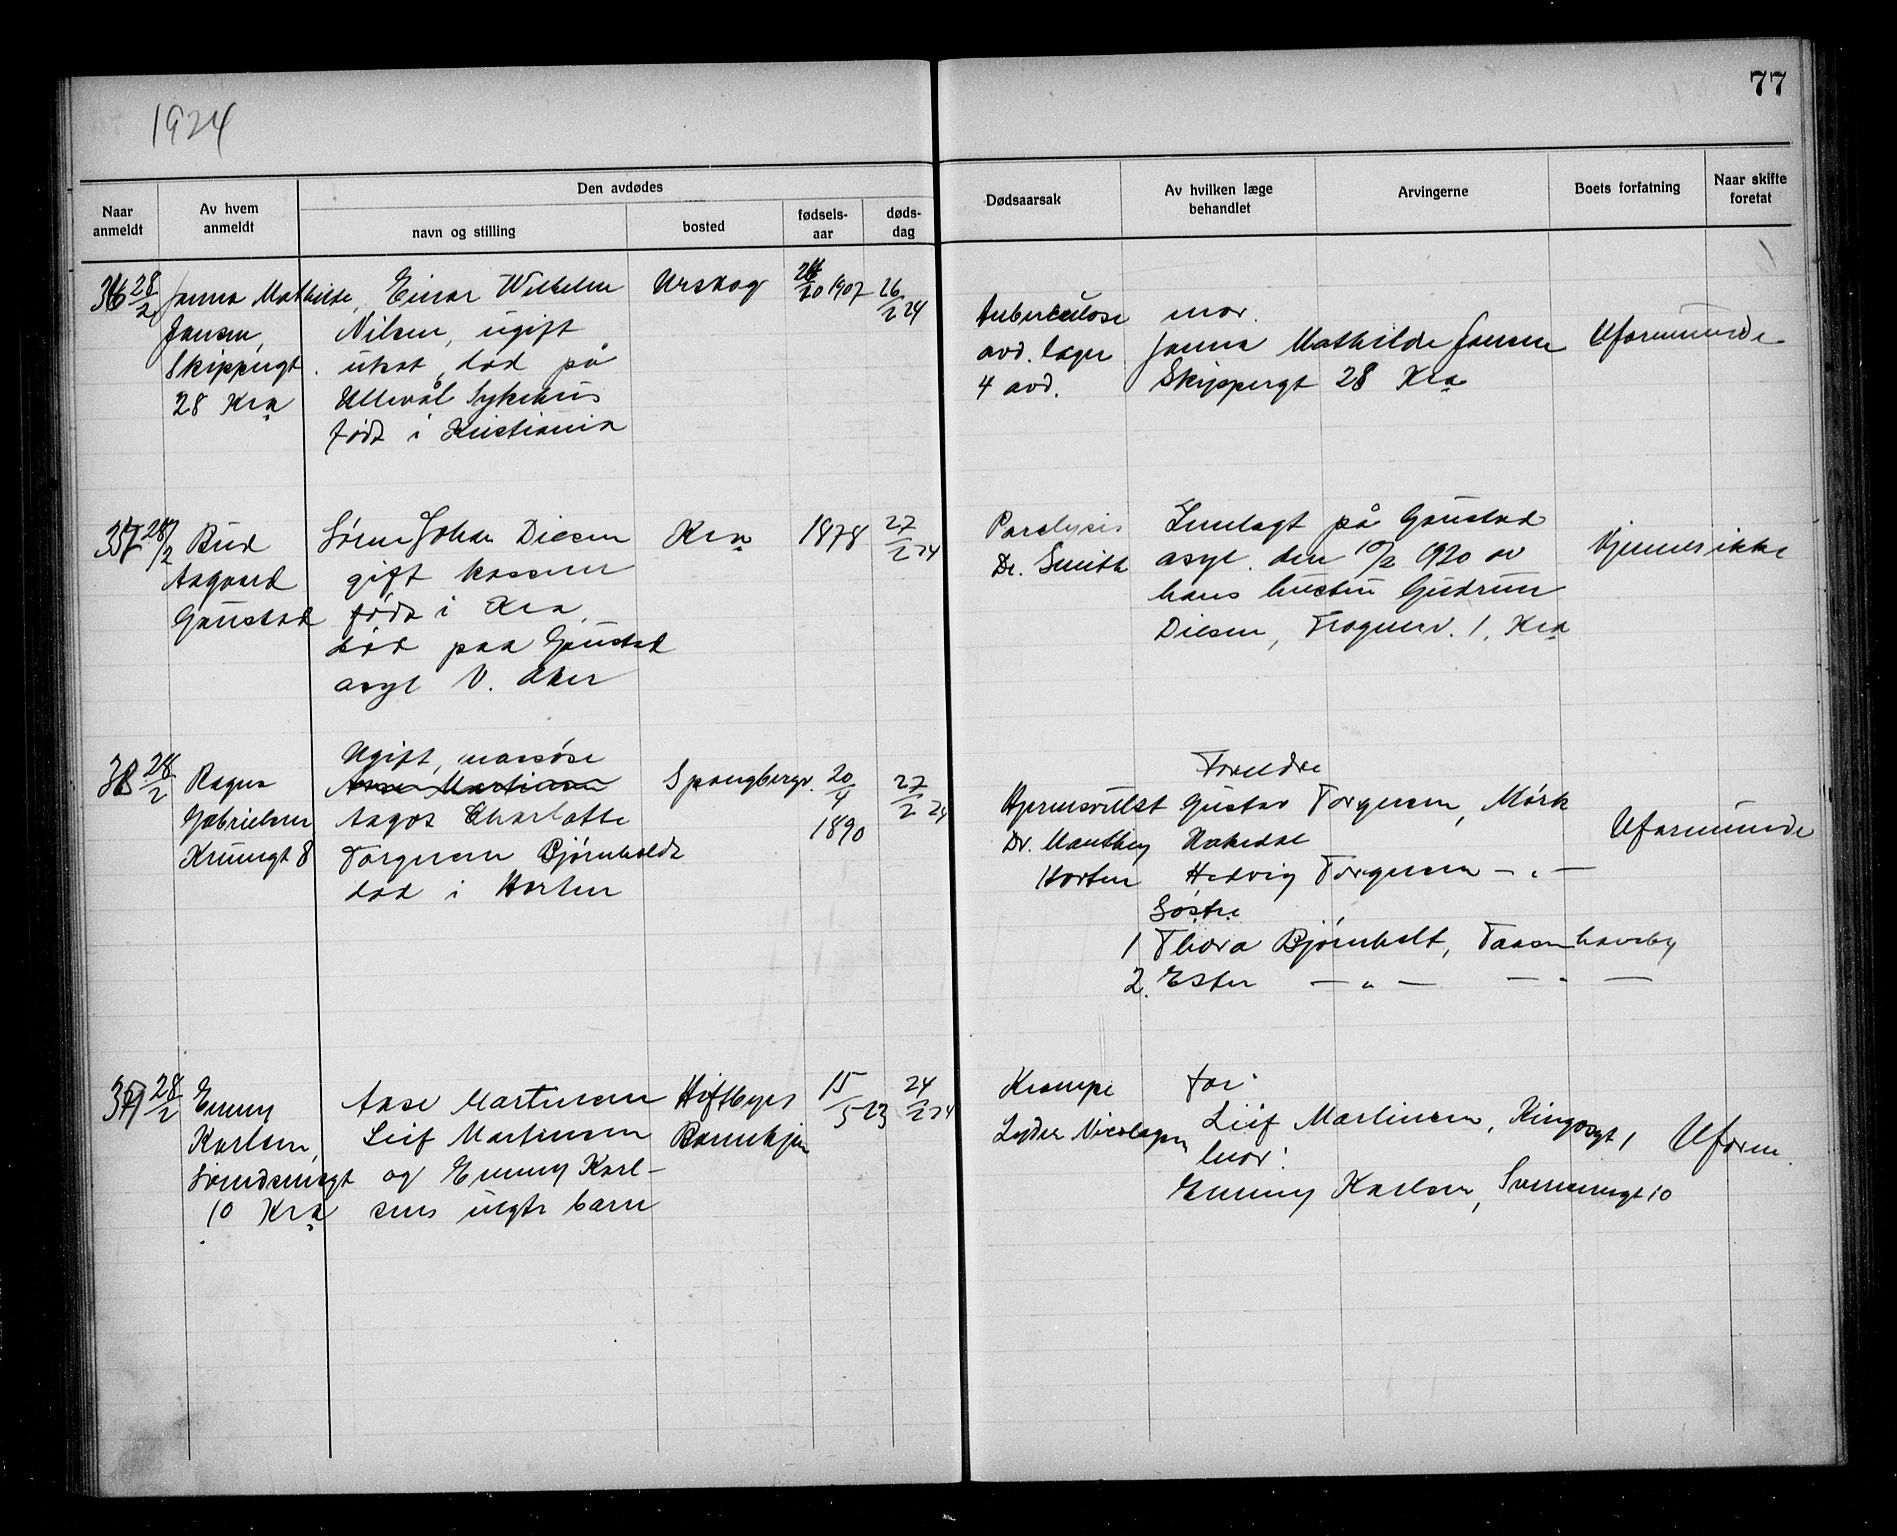 1924
77
Naar anmeldt
Av hvem anmeldt
Den avdødes
navn og stilling
bosted
fødsels-aar
døds-dag
Dødsaarsak
Av hvilken læge behandlet
Arvingerne
Boets forfatning
Naar skifte foretat
36 28/2 Janna Mathilde
Jansen,
Skippergt.
28 Kra
Einar Wilhelm
Nilsen, ugift
død på
Ullevål Sykehus
født i Kristiania
Urskog
1907
26/2 24
Tuberculose
avd. læger
4 avd.
mor.
Janna Mathilde Jansen
Skippergt 28 Kra
Uformuende
37 28/2 Bud
Aagaard
Gaustad
Søren Johan Diesen
gift
født i Kra
død paa Gaustad
asyl V. Aker
Kra
1878
27/2 24
Paralysis
Dr. Smith
Innlagt på Gaustad
asyl. den 10/2 1920 av
hans hustru Gudrun
Diesen, Frognerv. 1, Kra
Kjennes ikke
38 28/2 Ragna
Gabrielsen
8
Ugift, massøse
Aase Martinsen
Aagot Charlotte
Torgersen Bjørnholdt
død i Horten
Spangbergv.
20/4
1890
27/2 24
Hjernesvulst
Dr. Manthey
Horten
Foreldre
Gustav Torgersen, Mørk
Hakedal
Hedvig Torgersen — " —
Søstre
1 Thora Bjørnholt, Taasen haveby
2. Ester — " — — " —
Uformuende
39 28/2 Emmy
Karlsen,
10 Kra
Aase Martinsen
Leif Martinsen
og Emmy Karl-
sens uegte barn
15/5 23
24/2 24
Krampe
Lyder Nicolaysen
far:
Leif Martinsen, Kingosgt 1
mor:
Emmy Karlsen, Svensengt 10
Uform.